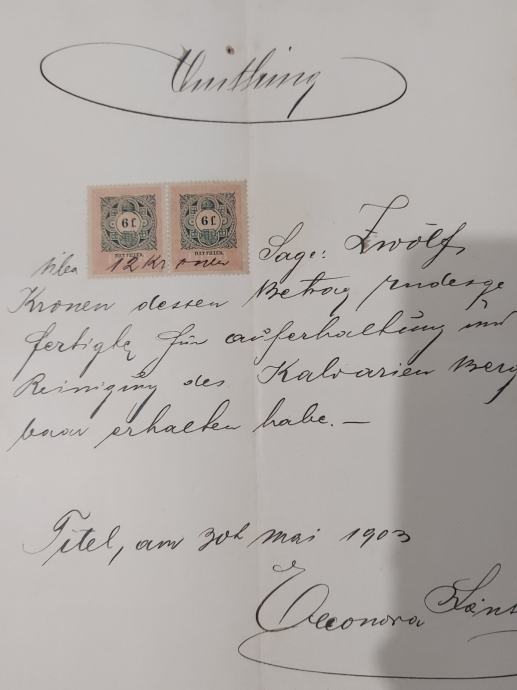 Quittung
6 f. 6 f.
HAT FILLÉR. HAT FILLÉR.
über 12 Kronen Sage: Zwölf
Kronen dessen Betrag Endesge
fertigte für auferhaltung und
Reinigung des Kalvarien Berg
baar erhalten habe. —
Titel, am 30t Mai 1903
Eleonora